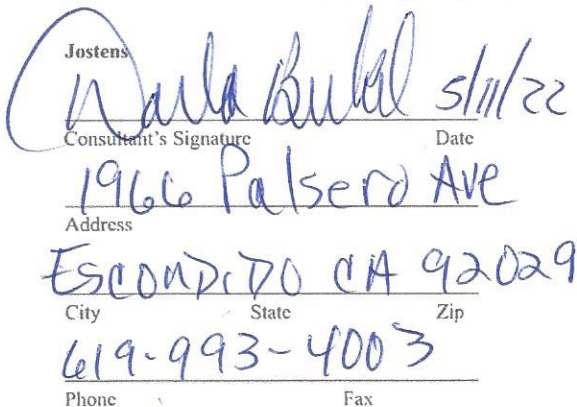 Jostens
5/11/22
Consultant's Signature Date
1966 Palsero Ave
Address
Escondido CA 92029
City State Zip
619-993-4003
Phone Fax